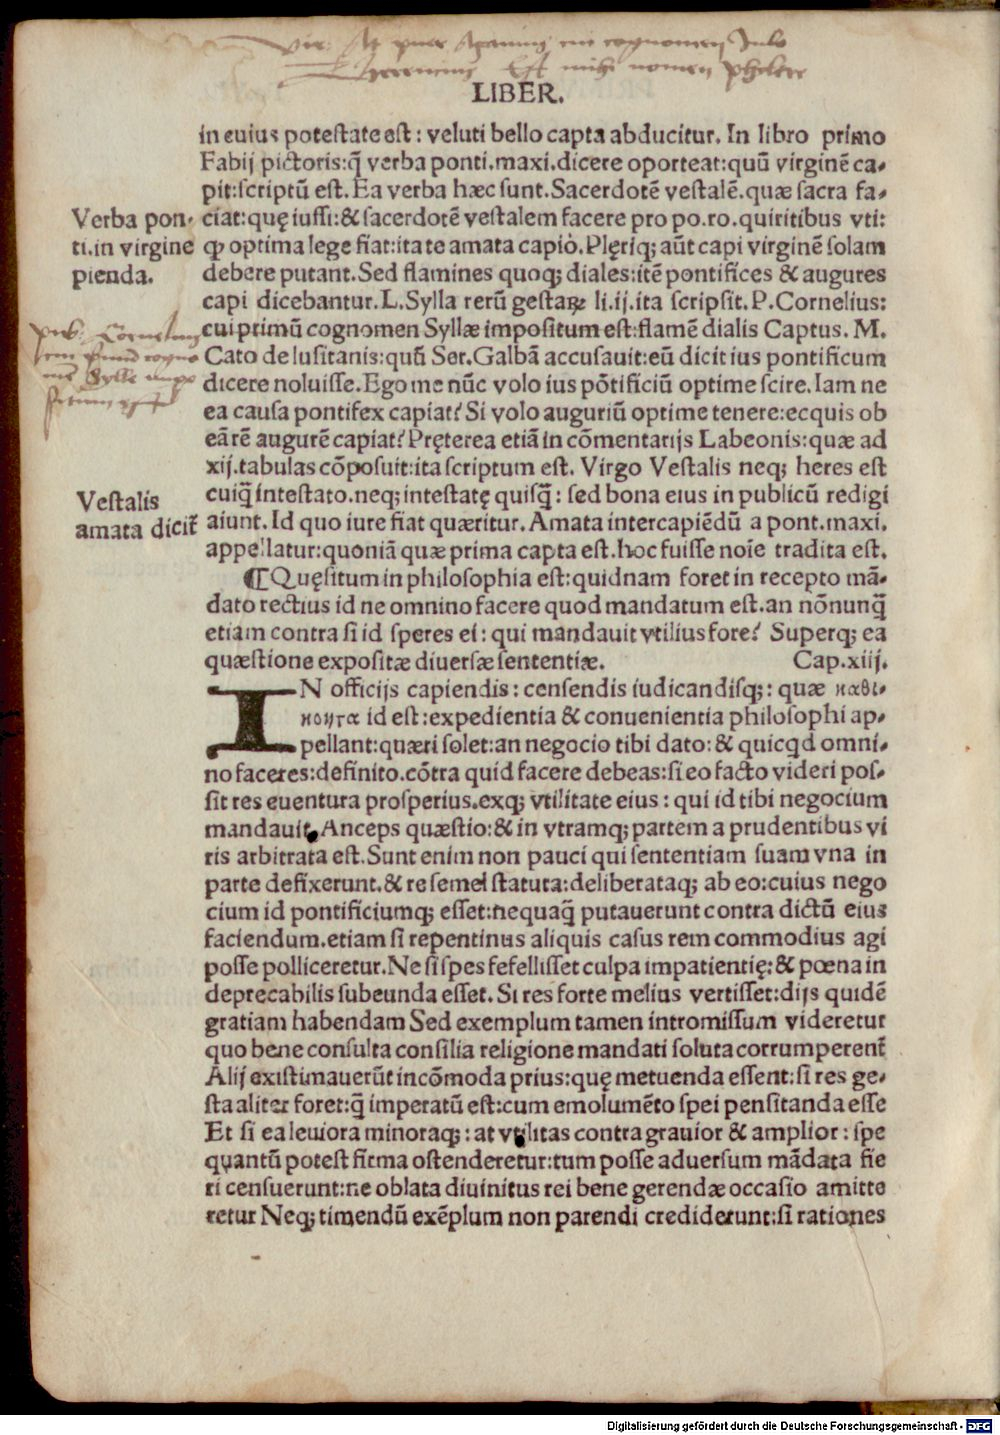 LIBER.
in cuius poteſtate est: veluti bello capta abducitur. In libro primo
Fabij pictoris:q̃ verba ponti.maxi.dicere oporteat:quũ virginẽ ca-
pit:ſcriptũ est. Ea verba hæc sunt. Sacerdotẽ veſtalẽ.quæ sacra fa-
Verba pon-
ti.in virgine
pienda.
ciat:quę iuſſi:& sacerdotẽ veſtalem facere pro po.ro.quiritibus vti:
ꝙ optima lege fiat:ita te amata capio. Plęriq; aũt capi virginẽ solam
debere putant. Sed flamines quoq; diales:itẽ pontifices & augures
capi dicebantur. L. Sylla rerũ geſtaꝝ li.ij.ita ſcripſit. P. Cornelius:
cui primũ cognomen Syllæ impoſitum est:flamẽ dialis Captus. M.
Cato de luſitanis:quũ Ser. Galbã accuſauit:eũ dicit ius pontificum
dicere noluiſſe. Ego me nũc volo ius põtificiũ optime ſcire. Iam ne
ea cauſa pontifex capiar? Si volo auguriũ optime tenere:ecquis ob
eã rẽ augurẽ capiat? Pręterea etiã in cõmentarijs Labeonis:quæ ad
xij.tabulas cõpoſuit:ita ſcriptum est. Virgo Veſtalis neq; heres est
Veſtalis
amata dicit̃
cuiq̃ inteſtato.neq; inteſtatę quiſq̃: sed bona eius in publicũ redigi
aiunt. Id quo iure fiat quæritur. Amata intercapiẽdũ a pont.maxi.
appellatur:quoniã quæ prima capta est.hoc fuiſſe noĩe tradita est.
¶ Quęſitum in philoſophia est:quidnam foret in recepto mã-
dato rectius id ne omnino facere quod mandatum est.an nõnunq̃
etiam contra ſi id ſperes ei: qui mandauit vtilius fore? Superq; ea
quæſtione expoſitæ diuerſæ sententiæ. Cap.xiij.
IN officijs capiendis: cenſendis iudicandiſq;: quæ καθι-
κοντα id est:expedientia & conuenientia philoſophi ap-
pellant:quæri ſolet:an negocio tibi dato:& quicqd omni-
no faceres:definito.cõtra quid facere debeas:ſi eo facto videri poſ-
ſit res euentura proſperius.exq; vtilitate eius: qui id tibi negocium
mandauit. Anceps quæſtio:& in vtramq; partem a prudentibus vi
ris arbitrata est. Sunt enim non pauci qui sententiam suam vna in
parte defixerunt.& re semel ſtatuta:deliberataq; ab eo:cuius nego
cium id pontificiumq; eſſet:nequaq̃ putauerunt contra dictũ eius
faciendum.etiam ſi repentinus aliquis caſus rem commodius agi
poſſe polliceretur. Ne ſi ſpes fefelliſſet culpa impatientię:& pœna in
deprecabilis ſubeunda eſſet. Si res forte melius vertiſſet:dijs quidẽ
gratiam habendam Sed exemplum tamen intromiſſum videretur
quo bene conſulta conſilia religione mandati ſoluta corrumperent̃
Alij exiſtimauerũt incõmoda prius:quę metuenda eſſent:ſi res ge-
ſta aliter foret:q̃ imperatũ est:cum emolumẽto ſpei penſitanda eſſe
Et ſi ea leuiora minoraq;: at vtilitas contra grauior & amplior: ſpe
quantũ poteſt firma oſtenderetur:tum poſſe aduerſum mãdata fie
ri cenſuerunt:ne oblata diuinitus rei bene gerendæ occaſio amitte
retur Neq; timendũ exẽplum non parendi crediderunt:ſi rationes
Digitalisierung gefördert durch die Deutsche Forschungsgemeinschaft - DFG